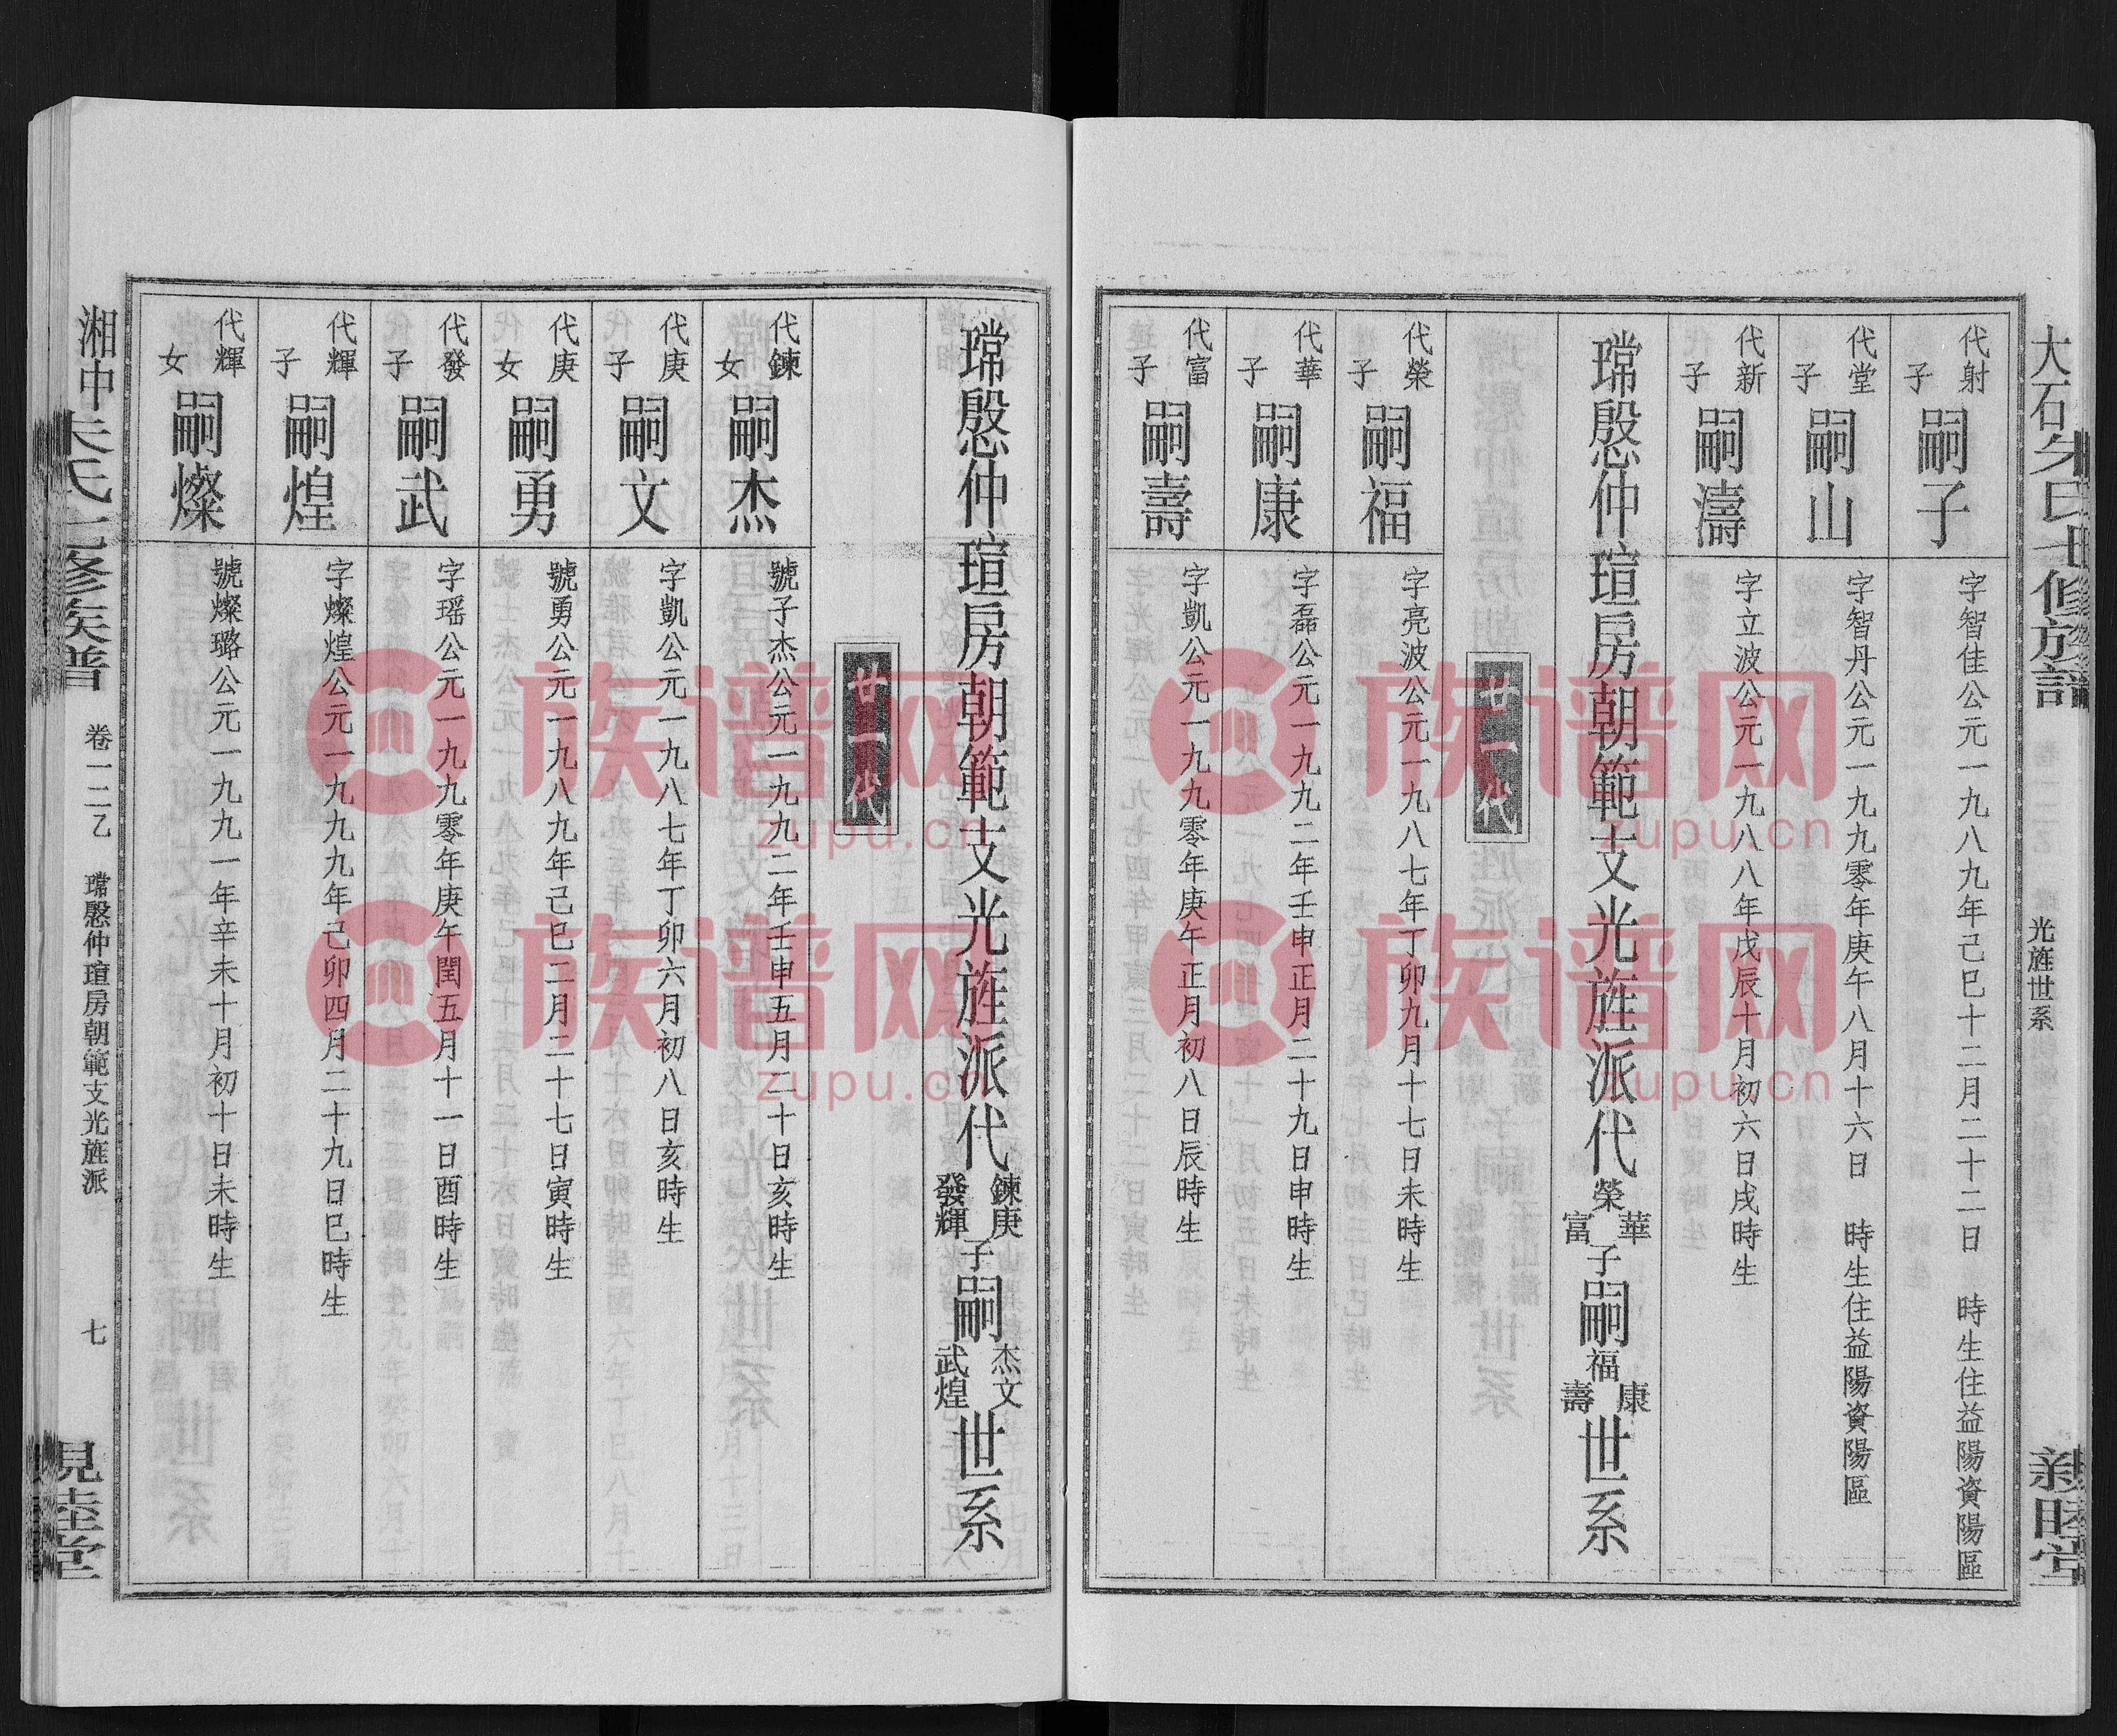 大石朱氏七修族譜
光旌世系
親睦堂
代射子
嗣子
字智佳公元一九八九年己巳十二月二十二日 時生住益陽資陽區
代堂子
嗣山
字智丹公元一九九零年庚午八月十六日 時生住益陽資陽區
代新子
嗣濤
字立波公元一九八八年戊辰十月初六日戌時生
瑺慇仲瑄房朝範支光旌派代榮華富子嗣福康壽世系
廿一代
代榮子
嗣福
字亮波公元一九八七年丁卯九月十七日未時生
代華子
嗣康
字磊公元一九九二年壬申正月二十九日申時生
代富子
嗣壽
字凱公元一九九零年庚午正月初八日辰時生
瑺慇仲瑄房朝範支光旌派代鍊庚發輝子嗣杰文武煌世系
廿一代
代鍊女
嗣杰
號子杰公元一九九二年壬申五月二十日亥時生
代庚子
嗣文
字凱公元一九八七年丁卯六月初八日亥時生
代庚女
嗣勇
號勇公元一九八九年己巳二月二十七日寅時生
代發子
嗣武
字瑶公元一九九零年庚午閏五月十一日酉時生
代輝子
嗣煌
字燦煌公元一九九九年己卯四月二十九日巳時生
代輝女
嗣燦
號燦璐公元一九九一年辛未十月初十日未時生
湘中朱氏七修族譜
卷一二乙
瑺慇仲瑄房朝範支光旌派
七
親睦堂
族谱网
zupu.cn
族谱网
zupu.cn
族谱网
zupu.cn
族谱网
zupu.cn